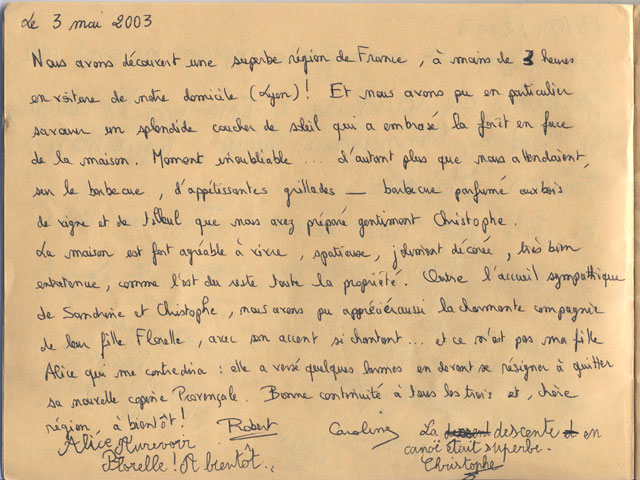 Le 3 mai 2003
Nous avons découvert une superbe région de France, à moins de 3 heures
en voiture de notre domicile (Lyon)! Et nous avons pu en particulier
savourer un splendide coucher de soleil qui a embrasé la forêt en face
de la maison. Moment inoubliable ... d'autant plus que nous attendaient,
sur le barbecue, d'appétissantes grillades — barbecue parfumé aux bois
de vigne et de tilleul que nous avez préparé gentiment Christophe.
La maison est fort agréable à vivre, spatieuse, joliment décorée, très bien
entretenue, comme l'est du reste toute la propriété. Outre l'accueil sympathique
de Sandrine et Christophe, nous avons pu apprécier aussi la charmante compagnie
de leur fille Florelle, avec son accent si chantant ... et ce n'est pas ma fille
Alice qui me contredira : elle a versé quelques larmes en devant se résigner à quitter
sa nouvelle copine Provençale. Bonne continuité à tous les trois et, chère
région, à bientôt! Robert Caroline La descente en
canoë était superbe.
Christophe
Alice Aurevoir
Florelle! A bientôt..